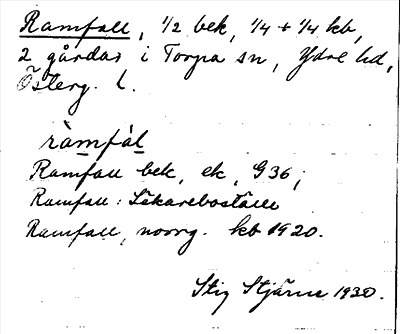 Ramfall, 1/2 bek, 1/4 + 1/4 kb,
2 gårdar i Torpa sn, Ydre hd,
Österg. l.
ràmfàl
Ramfall bek, ek, G36;
Ramfall: Läkareboställe
Ramfall, noorg. kb 1920.
Stig Stjärne 1930.